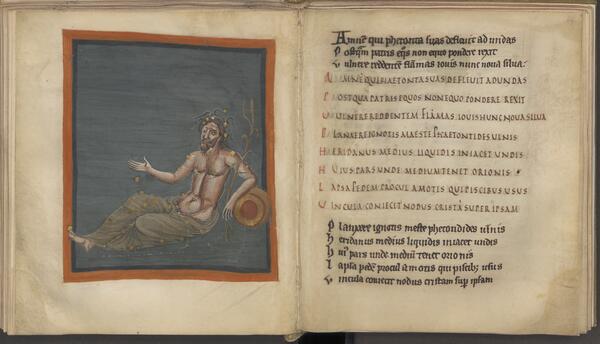 Amnē qui phetonta suas defleuit ad undas
Postqm̄ patris eq̄s non equo pondere rexit
Vulnere reddentē flāmas iouis hunc noua silua
AMNĒ QUI PHAETONTA SUAS DEFLEUIT AD UNDAS
POSTQUA PATRIS EQUOS NON EQUO PONDERE REXIT
UULNERE REDDENTEM FLĀMAS IOUIS HUNC NOUA SILUA
PLANXERE IGNOTIS MAESTE PHAETONTIDES ULNIS
HERIDANUS MEDIUS LIQUIDIS INIACET UNDIS
HUIUS PARS UNDE MEDIUM TENET ORIONIS
LAPSA PEDEM PROCUL AMOTIS QUI PISCIBUS USUS
VINCULA CONIECIT NODUS CRISTĀ SUPER IPSAM
Planxere ignotis meste phetondides ulnis
heridanus medius liquidis iniacet undis
hui' pars unde mediū tenet orionis
lapsa pedē procul amotis qui piscib; usus
Vincula coniecit nodus cristam sup ipsam